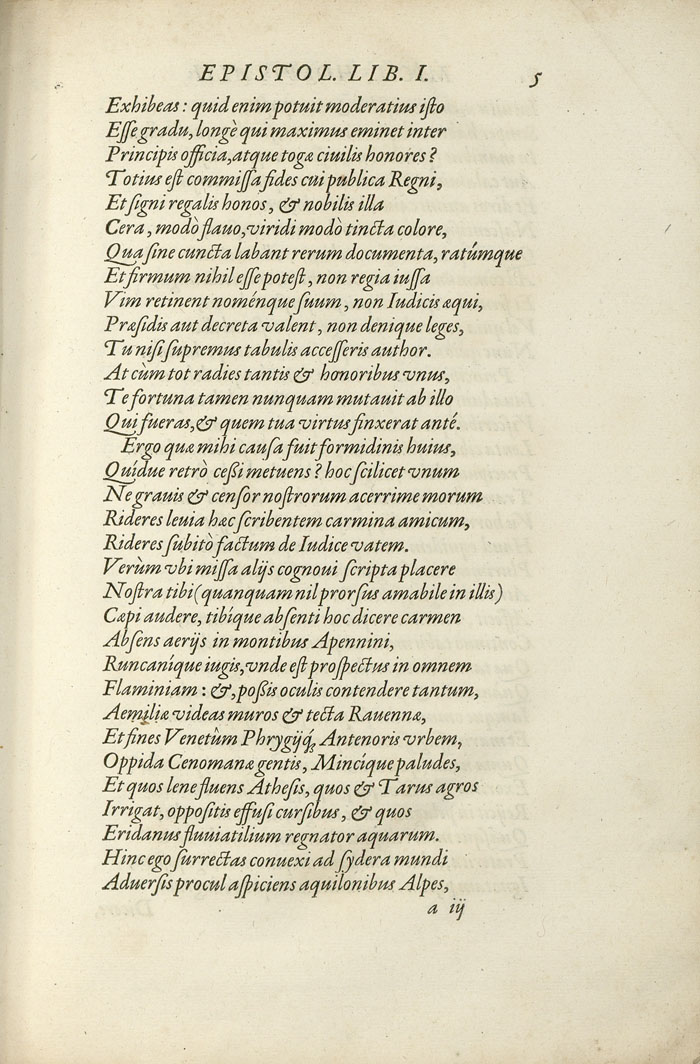 EPISTOL. LIB. I. 5
Exhibeas : quid enim potuit moderatius iſto
Eſſe gradu, longè qui maximus eminet inter
Principis officia, atque togæ ciuilis honores ?
Totius eſt commiſſa fides cui publica Regni,
Et ſigni regalis honos, & nobilis illa
Cera, modò flauo, viridi modò tincta colore,
Qua ſine cuncta labant rerum documenta, ratúmque
Et firmum nihil eſſe poteſt, non regia iuſſa
Vim retinent noménque ſuum, non Iudicis æqui,
Præſidis aut decreta valent, non denique leges,
Tu niſi ſupremus tabulis acceſſeris author.
At cùm tot radies tantis & honoribus vnus,
Te fortuna tamen nunquam mutauit ab illo
Qui fueras, & quem tua virtus finxerat anté.
Ergo quæ mihi cauſa fuit formidinis huius,
Quídue retrò ceßi metuens ? hoc ſcilicet vnum
Ne grauis & cenſor noſtrorum acerrime morum
Rideres leuia hæc ſcribentem carmina amicum,
Rideres ſubitò factum de Iudice vatem.
Verùm vbi miſſa alijs cognoui ſcripta placere
Noſtra tibi (quanquam nil prorſus amabile in illis)
Cæpi audere, tibíque abſenti hoc dicere carmen
Abſens aerijs in montibus Apennini,
Runcaníque iugis, vnde eſt proſpectus in omnem
Flaminiam : &, poßis oculis contendere tantum,
Aemiliæ videas muros & tecta Rauennæ,
Et fines Venetûm Phrygijq́; Antenoris vrbem,
Oppida Cenomanæ gentis, Mincíque paludes,
Et quos lene fluens Atheſis, quos & Tarus agros
Irrigat, oppoſitis effuſi curſibus, & quos
Eridanus fluuiatilium regnator aquarum.
Hinc ego ſurrectas conuexi ad ſydera mundi
Aduerſis procul aſpiciens aquilonibus Alpes,
a iij